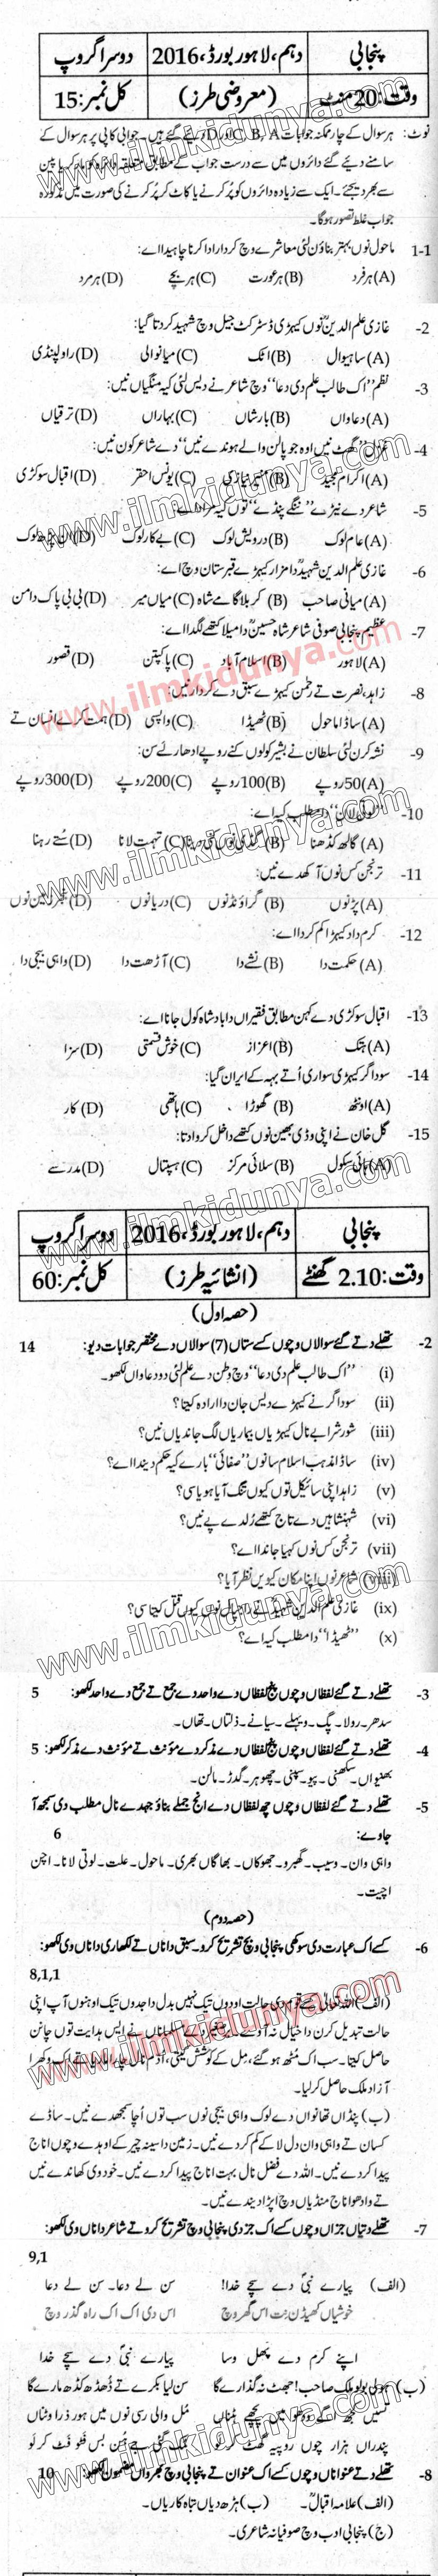 پنجابی
دہم، لاہور بورڈ، 2016
دوسرا گروپ
وقت: 20 منٹ
(معروضی طرز)
کل نمبر: 15
نوٹ: ہر سوال کے چار ممکنہ جوابات A، B، C اور D دیئے گئے ہیں۔ جوابی کاپی پر ہر سوال کے
سامنے دیئے گئے دائروں میں سے درست جواب کے مطابق متعلقہ دائرہ کو مارکر یا پین
سے بھر دیجئے۔ ایک سے زیادہ دائروں کو پُر کرنے یا کاٹ کر پُر کرنے کی صورت میں مذکورہ
جواب غلط تصور ہوگا۔
1-1 ماحول نوں بہتر بناؤن لئی معاشرے وچ کردار ادا کرنا چاہیدا اے:
(A) ہر فرد (B) ہر عورت (C) ہر بچے (D) ہر مرد
2- غازی علم الدینؒ نوں کیہڑی ڈسٹرکٹ جیل وچ شہید کر دتا گیا:
(A) ساہیوال (B) اٹک (C) میانوالی (D) راولپنڈی
3- نظم ”اک طالب علم دی دعا“ وچ شاعر نے دیس لئی کیہ منگیاں نیں:
(A) دعاواں (B) بارشاں (C) بہاراں (D) ترقیاں
4- غزل ”گھٹ نیں اوہ جو پالن والے ہوندے نیں“ دے شاعر کون نیں:
(A) اکرام مجید (B) منیر نیازی (C) یونس احقر (D) اقبال سوکڑی
5- شاعر دے نیڑے ”ننگے پنڈے“ توں کیہ مراد اے:
(A) عام لوک (B) درویش لوک (C) بے کار لوک (D) ان پڑھ لوک
6- غازی علم الدین شہیدؒ دا مزار کیہڑے قبرستان وچ اے:
(A) میانی صاحب (B) کربلا گامے شاہ (C) میاں میر (D) بی بی پاک دامن
7- عظیم پنجابی صوفی شاعر شاہ حسینؒ دا میلا کتھے لگدا اے:
(A) لاہور (B) اسلام آباد (C) پاکپتن (D) قصور
8- زاہد، نصرت تے رحمٰن کیہڑے سبق دے کردار نیں:
(A) ساڈا ماحول (B) ٹھیڈا (C) واپسی (D) ہمت کرے انسان تے
9- نشہ کرن لئی سلطان نے بشیر کولوں کنے روپے ادھارئے سن:
(A) 50 روپے (B) 100 روپے (C) 200 روپے (D) 300 روپے
10- دا مطلب کیہ اے:
(A) گالھ کڈھنا (B) (C) تہمت لانا (D) سُتے رہنا
11- ترنجن کس نوں آکھدے نیں:
(A) پڑنوں (B) گراؤنڈ نوں (C) دریا نوں (D)
12- کرم داد کیہڑا کم کردا اے:
(A) حکمت دا (B) نشے دا (C) آڑھت دا (D) واہی بیجی دا
13- اقبال سوکڑی دے کہن مطابق فقیراں دا بادشاہ کول جانا اے:
(A) ہتک (B) اعزاز (C) خوش قسمتی (D) سزا
14- سوداگر کیہڑی سواری اُتے بہہ کے ایران گیا:
(A) اونٹھ (B) گھوڑا (C) ہاتھی (D) کار
15- گل خان نے اپنی وڈی بھین نوں کتھے داخل کروا دتا:
(A) ہائی سکول (B) سلائی مرکز (C) ہسپتال (D) مدرسے
پنجابی
دہم، لاہور بورڈ، 2016
دوسرا گروپ
وقت: 2.10 گھنٹے
(انشائیہ طرز)
کل نمبر: 60
(حصہ اول)
2- تھلے دتے گئے سوالاں وچوں کسے ستاں (7) سوالاں دے مختصر جوابات دیو: 14
(i) ”اک طالب علم دی دعا“ وچ وطن دے علم لئی دو دعاواں لکھو۔
(ii) سوداگر نے کیہڑے دیس جان دا ارادہ کیتا؟
(iii) شور شرابے نال کیہڑیاں بیماریاں لگ جاندیاں نیں؟
(iv) ساڈا مذہب اسلام سانوں ”صفائی“ بارے کیہ حکم دیندا اے؟
(v) زاہد اپنی سائیکل توں کیوں تنگ آیا ہویا سی؟
(vi) شہنشاہیں دے تاج کتھے رُلدے پے نیں؟
(vii) ترنجن کس نوں کہیا جاندا اے؟
(viii) شاعر نوں اپنا مکان کیویں نظر آیا؟
(ix) غازی علم الدین شہیدؒ نے راجپال نوں کیوں قتل کیتا سی؟
(x) ”ٹھیڈا“ دا مطلب کیہ اے؟
3- تھلے دتے گئے لفظاں وچوں پنج لفظاں دے واحد دے جمع تے جمع دے واحد لکھو: 5
سدھر۔ رولا۔ پگ۔ ویہلے۔ سیانے۔ ذلتاں۔ تھاں۔
4- تھلے دتے گئے لفظاں وچوں پنج لفظاں دے مذکر دے مؤنث تے مؤنث دے مذکر لکھو: 5
بھنیواں۔ سکھنی۔ پیو۔ سپنی۔ چھوہر۔ گدڑ۔ مالن۔
5- تھلے دتے گئے لفظاں وچوں چھ لفظاں دے انج جملے بناؤ جہدے نال مطلب دی سمجھ آ
جاوے: 6
واہی وان۔ وسیب۔ گھبرو۔ جھوکاں۔ بھاگاں بھری۔ ماحول۔ علت۔ لوتی لانا۔ اچن
اچیت۔
(حصہ دوم)
6- کسے اک عبارت دی سوکھی پنجابی وچ تشریح کرو۔ سبق دا ناں تے لکھاری دا ناں وی لکھو:
8,1,1
(الف) اللہ تعالیٰ کسے قوم دی حالت اودوں تیک نہیں بدلدا جدوں تیک اوہنوں آپ اپنی
حالت تبدیل کرن دا خیال نہ آوے۔ دے مسلماناں نے ایس ہدایت توں چانن
حاصل کیتا۔ سب اک مٹھ ہو گئے، مِل کے کوشش کیتی، اُدّم نال تے اک وکھرا
آزاد ملک حاصل کر لیا۔
(ب) پنڈاں تھانواں دے لوک واہی بیجی نوں سب توں اُچا سمجھدے نیں۔ ساڈے
کسان تے واہی وان دل لا کے کم کردے نیں۔ زمین دا سینہ چیر کے اوہدے وچوں اناج
پیدا کردے نیں۔ اللہ دے فضل نال بہت اناج پیدا کردے نیں۔ خود وی کھاندے نیں
تے وادھو اناج منڈیاں وچ اپڑا دیندے نیں۔
7- تھلے دتیاں جزاں وچوں کسے اک جز دی پنجابی وچ تشریح کرو تے شاعر دا ناں وی لکھو:
9,1
(الف) پیارے نبیؐ دے سچے خدا! سن لے دعا۔ سن لے دعا
خوشیاں کھیڈن نِت اس گھر وچ اس دی اک اک راہ گذر وچ
اپنے کرم دے پھل وسا پیارے نبیؐ دے سچے خدا
(ب) ہولی بولو ملک صاحب! جھٹ نہ گذارے گا سن لیا بکرے تے ڈھڈھ کڈھ مارے گا
مُل والی رسی نوں میں ہور ذرا وٹناں
پندراں ہزار چوں روپیہ گھٹ کرو
8- تھلے دتے عنواناں وچوں کسے اک عنوان تے پنجابی وچ بھرواں مضمون لکھو: 10
(الف) علامہ اقبالؒ۔ (ب) ہڑھ دیاں تباہ کاریاں۔
(ج) پنجابی ادب وچ صوفیانہ شاعری۔
www.ilmkidunya.com